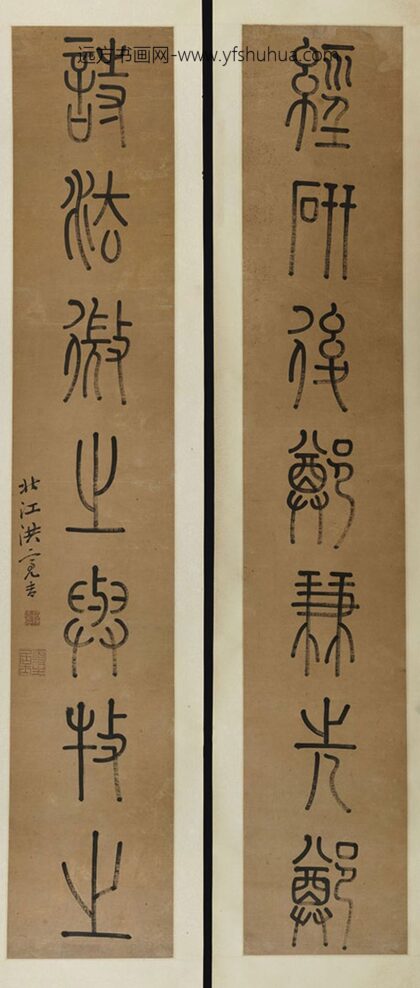 远方书画网-www.yfshuhua.com
經研後鄭兼先鄭
詩法微之與牧之
北江洪亮吉